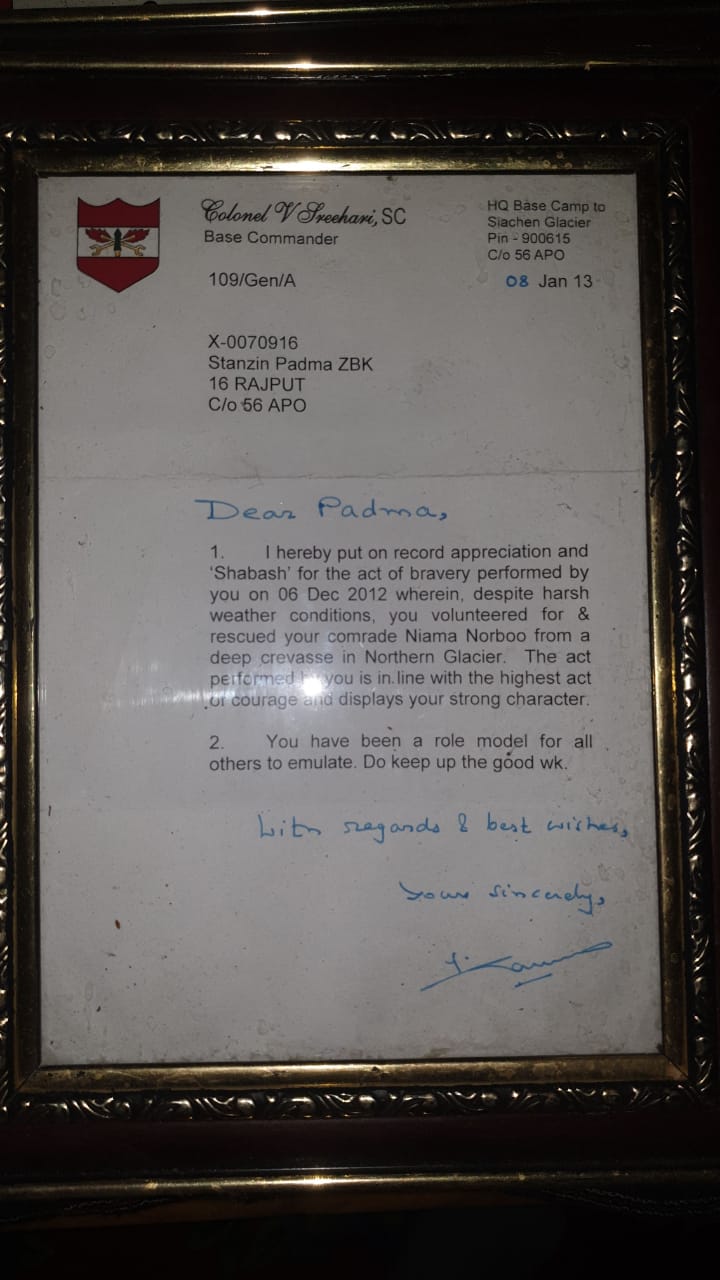 Colonel V Sreehari, SC
Base Commander
HQ Base Camp to
Siachen Glacier
Pin - 900615
C/o 56 APO
109/Gen/A
08 Jan 13
X-0070916
Stanzin Padma ZBK
16 RAJPUT
C/o 56 APO
Dear Padma,
1. I hereby put on record appreciation and
‘Shabash’ for the act of bravery performed by
you on 06 Dec 2012 wherein, despite harsh
weather conditions, you volunteered for &
rescued your comrade Niama Norboo from a
deep crevasse in Northern Glacier. The act
performed by you is in line with the highest act
of courage and displays your strong character.
2. You have been a role model for all
others to emulate. Do keep up the good wk.
With regards & best wishes,
Yours sincerely,